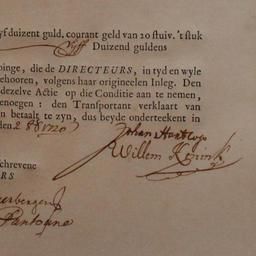 yf duizent guld. courant geld van 20 stuiv. 't stuk
Vyff Duizend guldens
oinge, die de DIRECTEURS, in tyd en wyle
behooren, volgens haar origineelen Inleg. Den
dezelve Actie op die Conditie aan te nemen,
enoegen: den Transportant verklaart van
n betaalt te zyn, dus beyde onderteekent in
den 28 1720
Johan Hartcop
Willem
schrevene
RS
erbergen
Pantoine